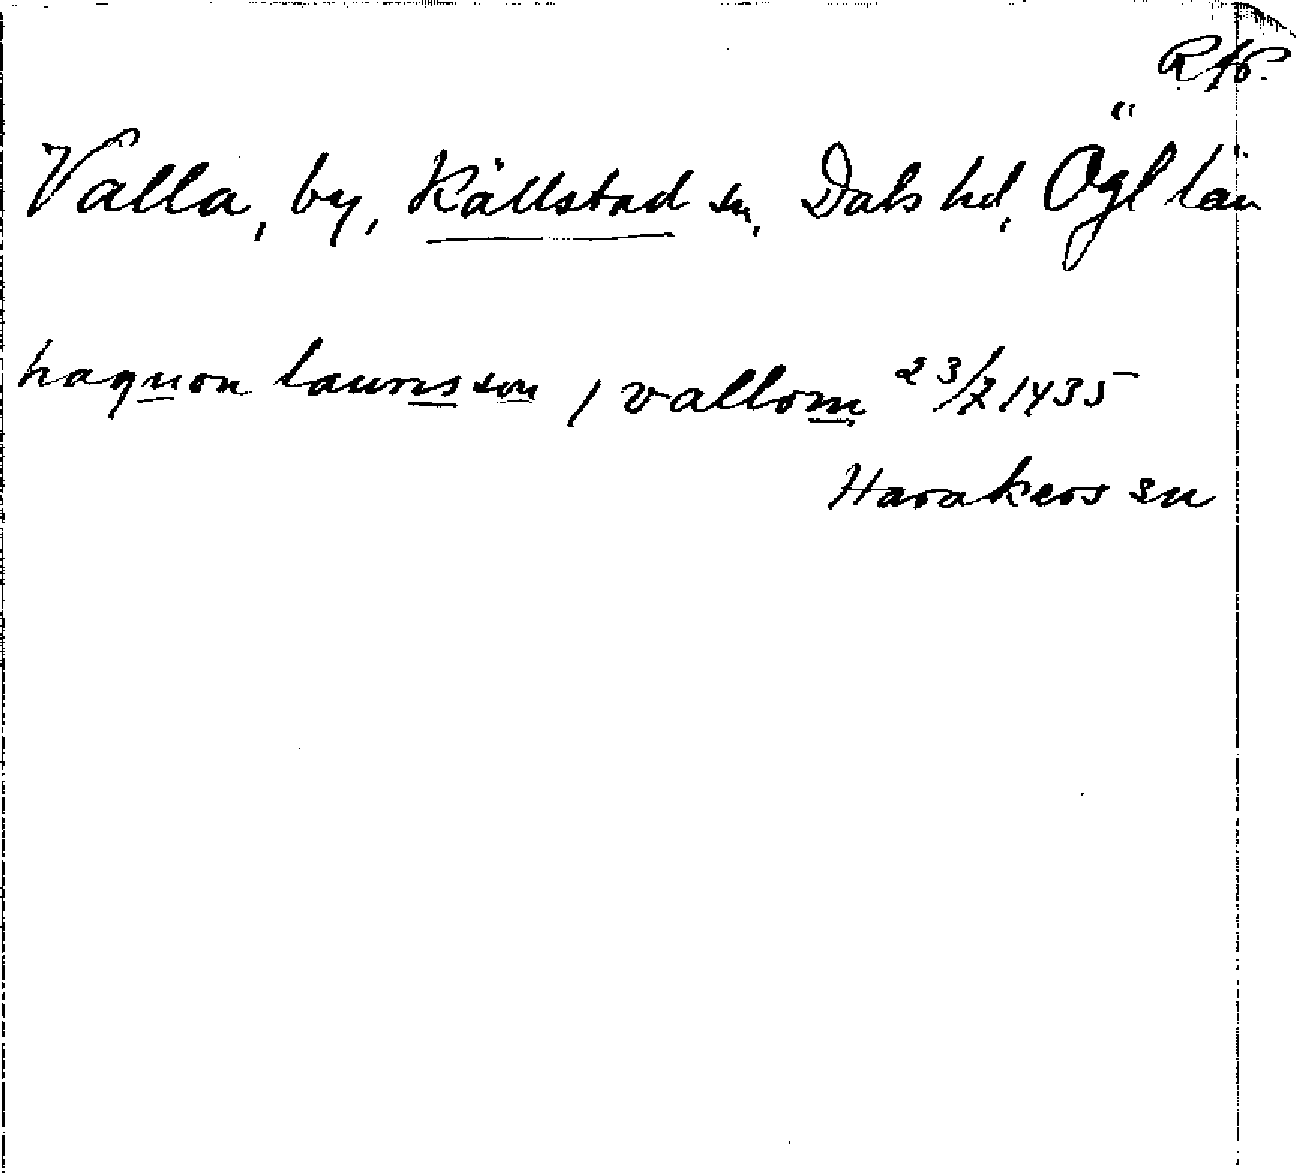 RAP.
Valla, by, Källstad sn, Dals hd, Ögl län
haquon laurisson / vallom 23/7 1435
Harakers sn